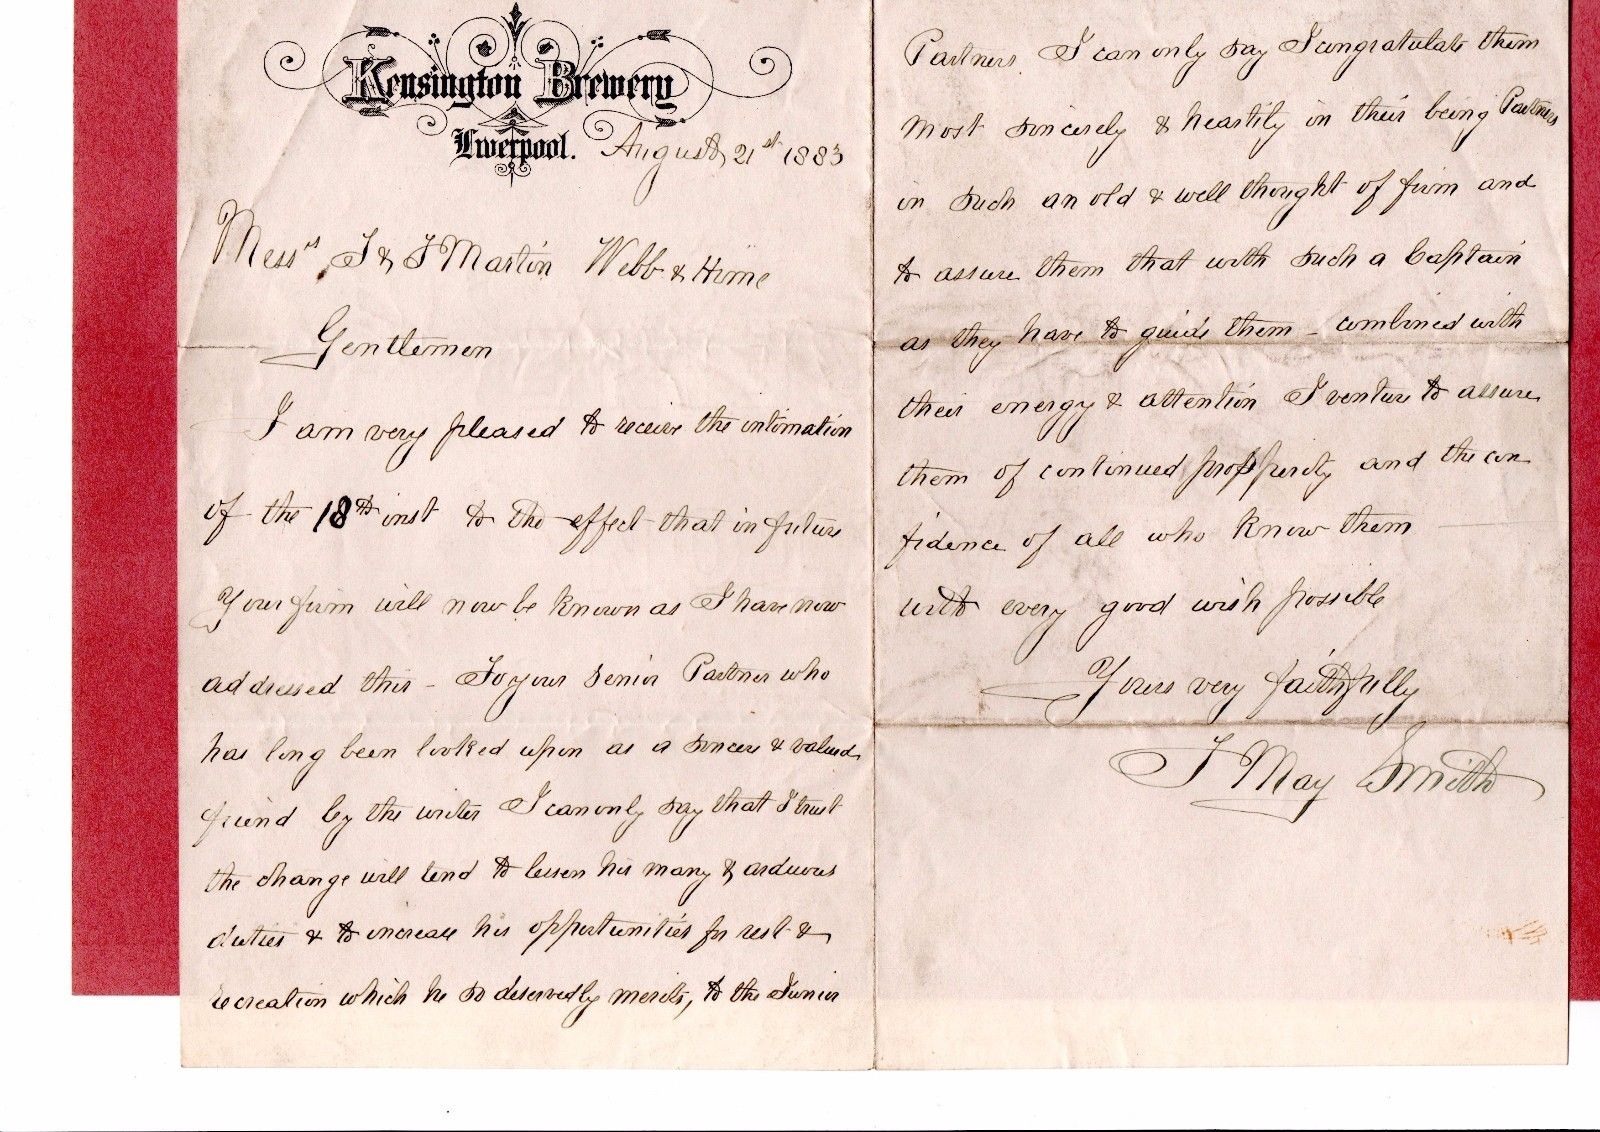 Kensington Brewery
Liverpool. August 21st 1883
Messrs J & J Martin Webb & Hime
Gentlemen
I am very pleased to receive the intimation
of the 18th inst to the effect that in future
Your firm will now be known as I have now
addressed this – To your Senior Partner who
has long been looked upon as a sincere & valued
friend by the writer I can only say that I trust
the change will tend to lessen his many & arduous
duties & to increase his opportunities for rest &
recreation which he so deservedly merits, to the Junior
Partners I can only say I congratulate them
most sincerely & heartily in their being Partners
in such an old & well thought of firm and
to assure them that with such a Captain
as they have to guide them – combined with
their energy & attention I venture to assure
them of continued prosperity and the con
fidence of all who know them
with every good wish possible
Yours very faithfully
J May Smith